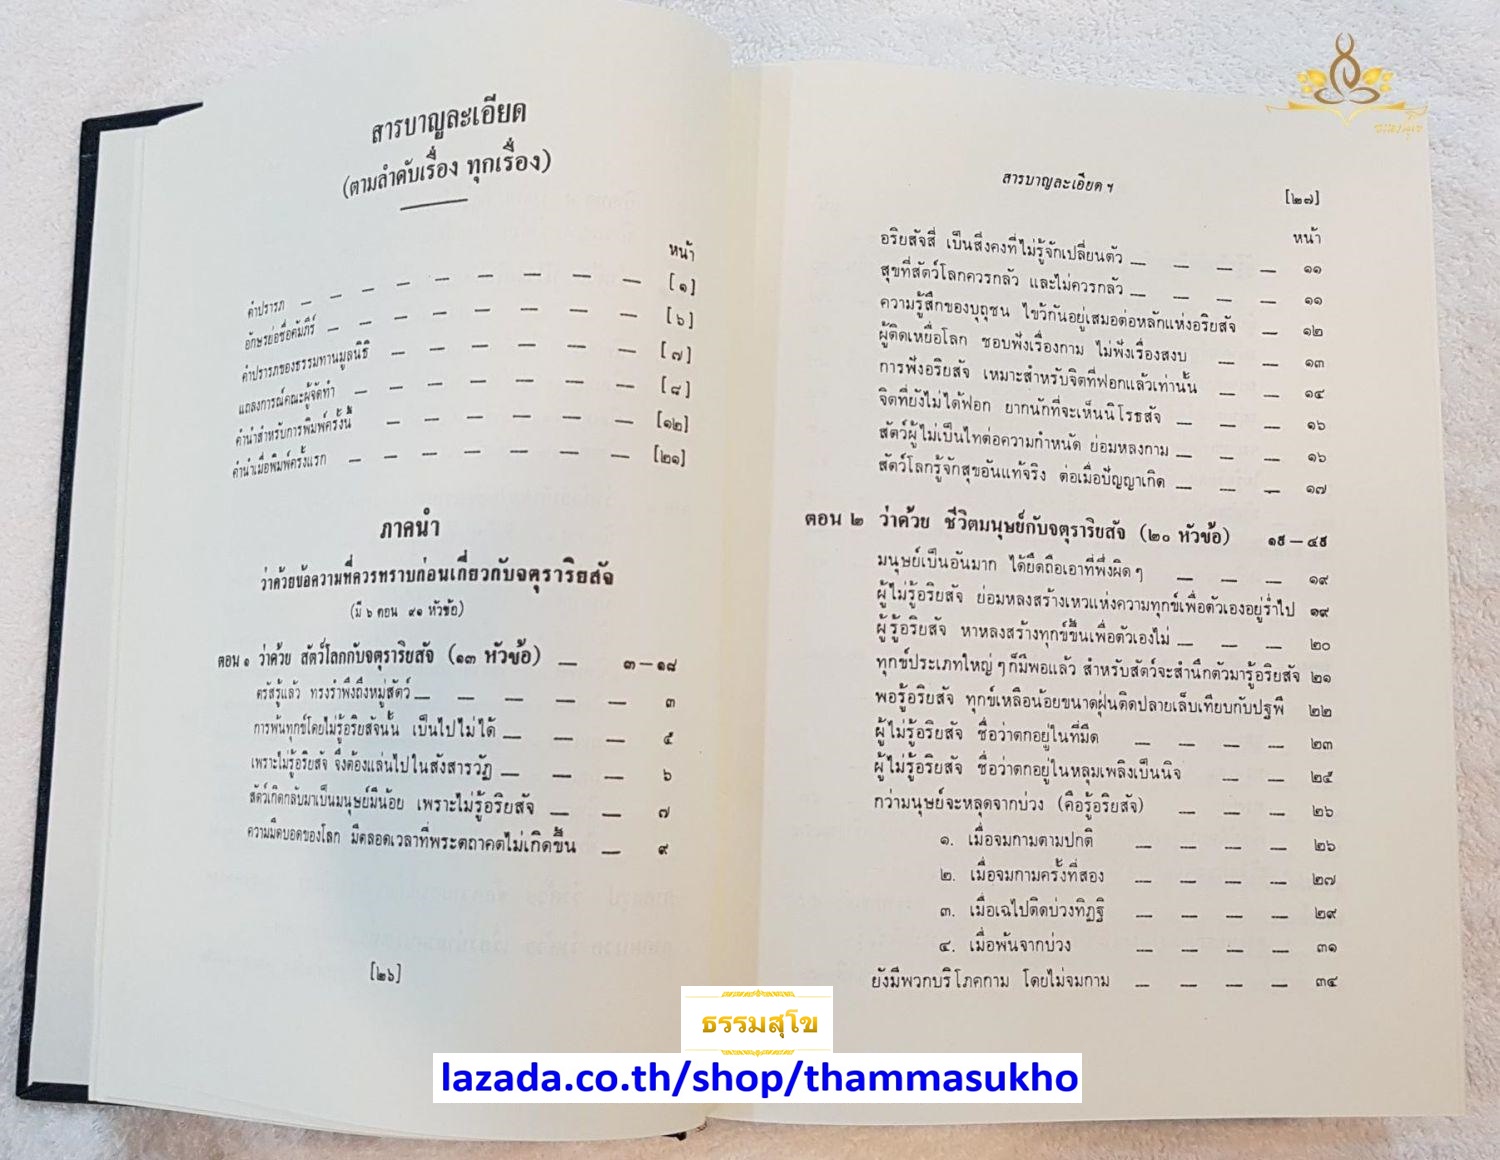 สารบาญละเอียด
(ตามลำดับเรื่อง ทุกเรื่อง)
หน้า
คำปรารภ — — — — — — — — [๑]
อักษรย่อชื่อคัมภีร์ — — — — — — — [๖]
คำปรารภของธรรมทานมูลนิธิ — — — — — — [๗]
แถลงการณ์คณะผู้จัดทำ — — — — — — — [๘]
คำนำสำหรับการพิมพ์ครั้งนี้ — — — — — — [๑๒]
คำนำเมื่อพิมพ์ครั้งแรก — — — — — — — [๒๑]
ภาคนำ
ว่าด้วยข้อความที่ควรทราบก่อนเกี่ยวกับจตุราริยสัจ
(มี ๖ ตอน ๙๑ หัวข้อ)
ตอน ๑ ว่าด้วย สัตว์โลกกับจตุราริยสัจ (๑๓ หัวข้อ) — ๓ – ๑๘
ตรัสรู้แล้ว ทรงรำพึงถึงหมู่สัตว์ — — — — — ๓
การพ้นทุกข์โดยไม่รู้อริยสัจนั้น เป็นไปไม่ได้ — — — ๕
เพราะไม่รู้อริยสัจ จึงต้องแล่นไปในสังสารวัฏ — — — ๖
สัตว์เกิดกลับมาเป็นมนุษย์มีน้อย เพราะไม่รู้อริยสัจ — — ๗
ความมืดบอดของโลก มีตลอดเวลาที่พระตถาคตไม่เกิดขึ้น — ๙
[๒๖]
สารบาญละเอียด ฯ
[๒๗]
หน้า
อริยสัจสี่ เป็นสิ่งคงที่ไม่รู้จักเปลี่ยนตัว — — — — ๑๑
สุขที่สัตว์โลกควรกลัว และไม่ควรกลัว — — — — ๑๑
ความรู้สึกของบุถุชน ไขว้กันอยู่เสมอต่อหลักแห่งอริยสัจ — ๑๒
ผู้ติดเหยื่อโลก ชอบฟังเรื่องกาม ไม่ฟังเรื่องสงบ — — ๑๓
การฟังอริยสัจ เหมาะสำหรับจิตที่ฟอกแล้วเท่านั้น — — ๑๔
จิตที่ยังไม่ได้ฟอก ยากนักที่จะเห็นนิโรธสัจ — — — ๑๖
สัตว์ผู้ไม่เป็นไทต่อความกำหนัด ย่อมหลงกาม — — — ๑๖
สัตว์โลกรู้จักสุขอันแท้จริง ต่อเมื่อปัญญาเกิด — — — ๑๗
ตอน ๒ ว่าด้วย ชีวิตมนุษย์กับจตุราริยสัจ (๒๐ หัวข้อ) ๑๙ – ๔๙
มนุษย์เป็นอันมาก ได้ยึดถือเอาที่พึ่งผิด ๆ — — — ๑๙
ผู้ไม่รู้อริยสัจ ย่อมหลงสร้างเหวแห่งความทุกข์เพื่อตัวเองอยู่ร่ำไป ๑๙
ผู้รู้อริยสัจ หาหลงสร้างทุกข์ขึ้นเพื่อตัวเองไม่ — — — — ๒๐
ทุกข์ประเภทใหญ่ ๆ ก็มีพอแล้ว สำหรับสัตว์จะสำนึกตัวมารู้อริยสัจ ๒๑
พอรู้อริยสัจ ทุกข์เหลือน้อยขนาดฝุ่นติดปลายเล็บเทียบกับปฐพี ๒๒
ผู้ไม่รู้อริยสัจ ชื่อว่าตกอยู่ในที่มืด — — — — ๒๓
ผู้ไม่รู้อริยสัจ ชื่อว่าตกอยู่ในหลุมเพลิงเป็นนิจ — — ๒๕
กว่ามนุษย์จะหลุดจากบ่วง (คือรู้อริยสัจ) — — — ๒๖
๑. เมื่อจมกามตามปกติ — — — — ๒๖
๒. เมื่อจมกามครั้งที่สอง — — — — ๒๗
๓. เมื่อเฉไปติดบ่วงทิฏฐิ — — — — ๒๙
๔. เมื่อพ้นจากบ่วง — — — — ๓๑
ยังมีพวกบริโภคกาม โดยไม่จมกาม — — — — ๓๔
ธรรมสุโข
ธรรมสุโข
lazada.co.th/shop/thammasukho